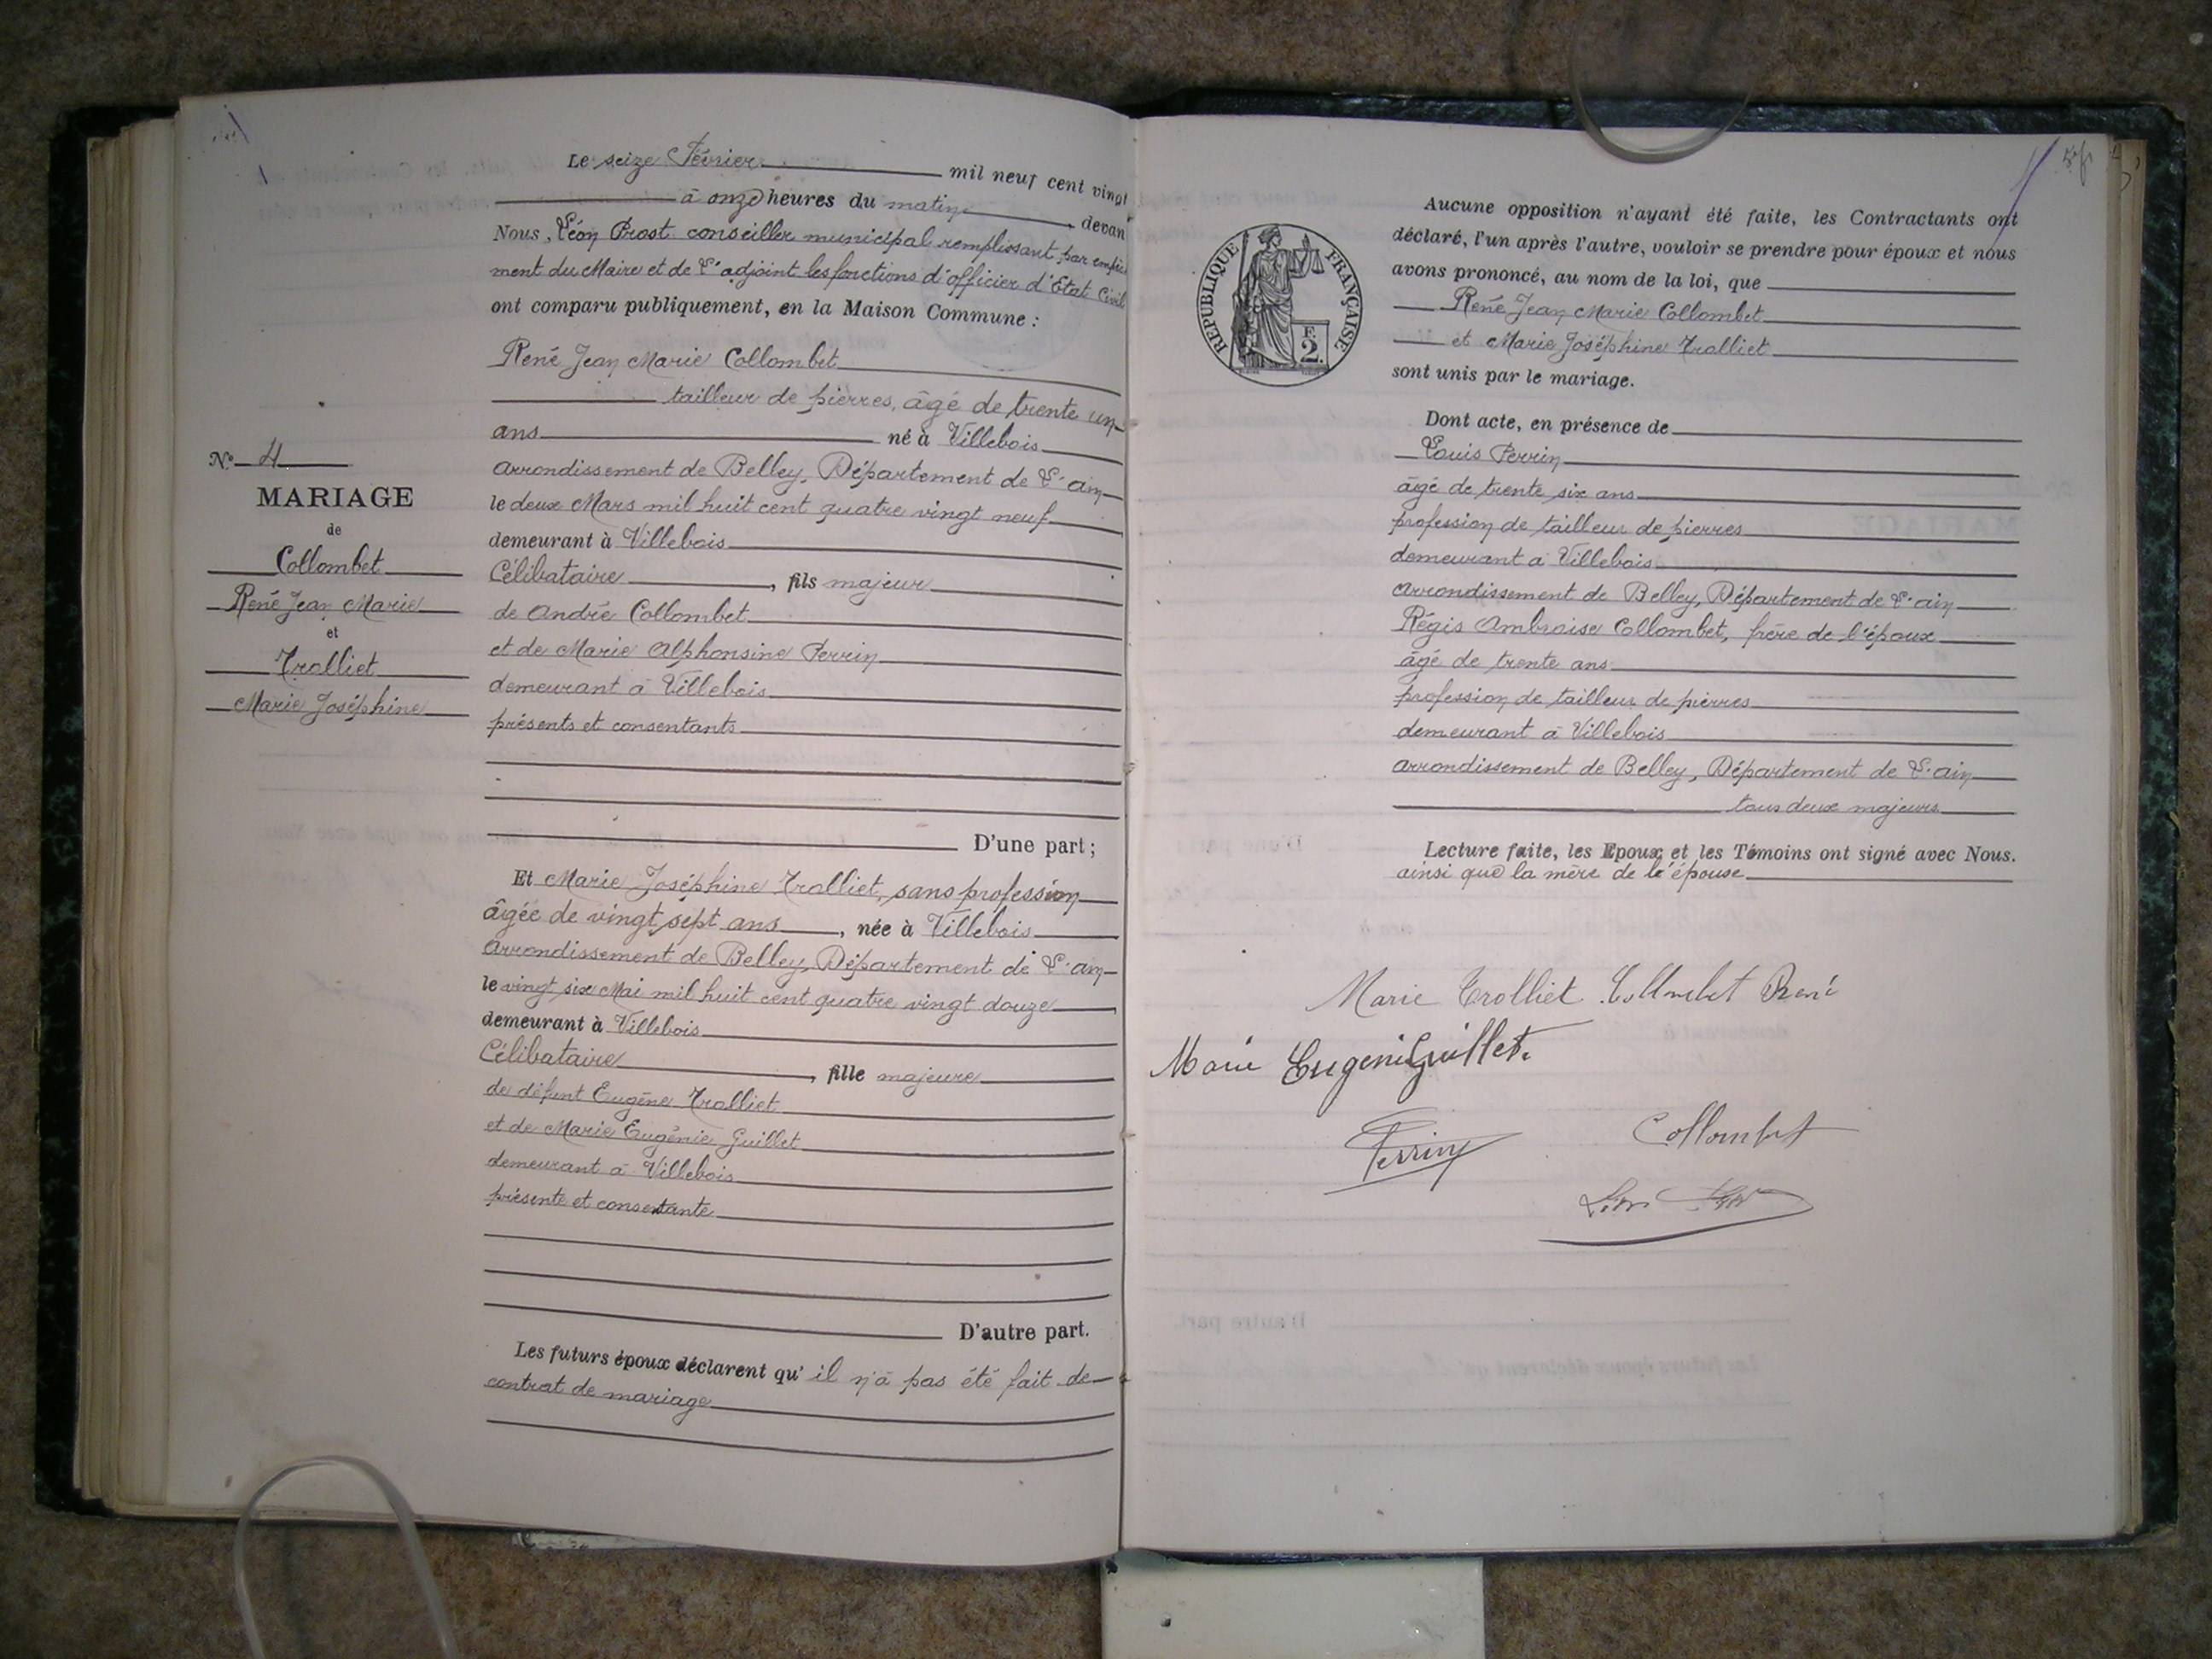 Le seize Février mil neuf cent vingt
à onze heures du matin, devan
Nous, Léon Prost conseiller municipal remplissant par empêc
ment du Maire et de L'adjoint les fonctions d'officier d'Etat Civil
ont comparu publiquement, en la Maison Commune :
René Jean Marie Collombet
tailleur de pierres, âgé de trente un
ans né à Villebois
arrondissement de Belley, Département de L'ain
le deux Mars mil huit cent quatre vingt neuf
demeurant à Villebois
Célibataire, fils majeur
de André Collombet
et de Marie Alphonsine Perrin
demeurant à Villebois
présents et consentants
D'une part ;
Et Marie Joséphine Trolliet, sans profession
âgée de vingt sept ans, née à Villebois
arrondissement de Belley, Département de L'ain
le vingt six Mai mil huit cent quatre vingt douze
demeurant à Villebois
Célibataire, fille majeure
de défunt Eugène Trolliet
et de Marie Eugénie Guillet
demeurant à Villebois
présente et consentante
D'autre part.
Les futurs époux déclarent qu'il n'a pas été fait de
contrat de mariage
N° 4
MARIAGE
de
Collombet
René Jean Marie
et
Trolliet
Marie Joséphine
RÉPUBLIQUE FRANÇAISE
E
2.
Aucune opposition n'ayant été faite, les Contractants ont
déclaré, l'un après l'autre, vouloir se prendre pour époux et nous
avons prononcé, au nom de la loi, que
René Jean Marie Collombet
et Marie Joséphine Trolliet
sont unis par le mariage.
Dont acte, en présence de
Louis Perrin
âgé de trente six ans
profession de tailleur de pierres
demeurant à Villebois
arrondissement de Belley, Département de L'ain
Régis Ambroise Collombet, frère de l'époux
âgé de trente ans
profession de tailleur de pierres
demeurant à Villebois
arrondissement de Belley, Département de L'ain
tous deux majeurs
Lecture faite, les Epoux et les Témoins ont signé avec Nous.
ainsi que la mère de l'épouse
Marie Trolliet Collombet René
Marie Eugenie Guillet.
Perrin Collombet
Léon Prost